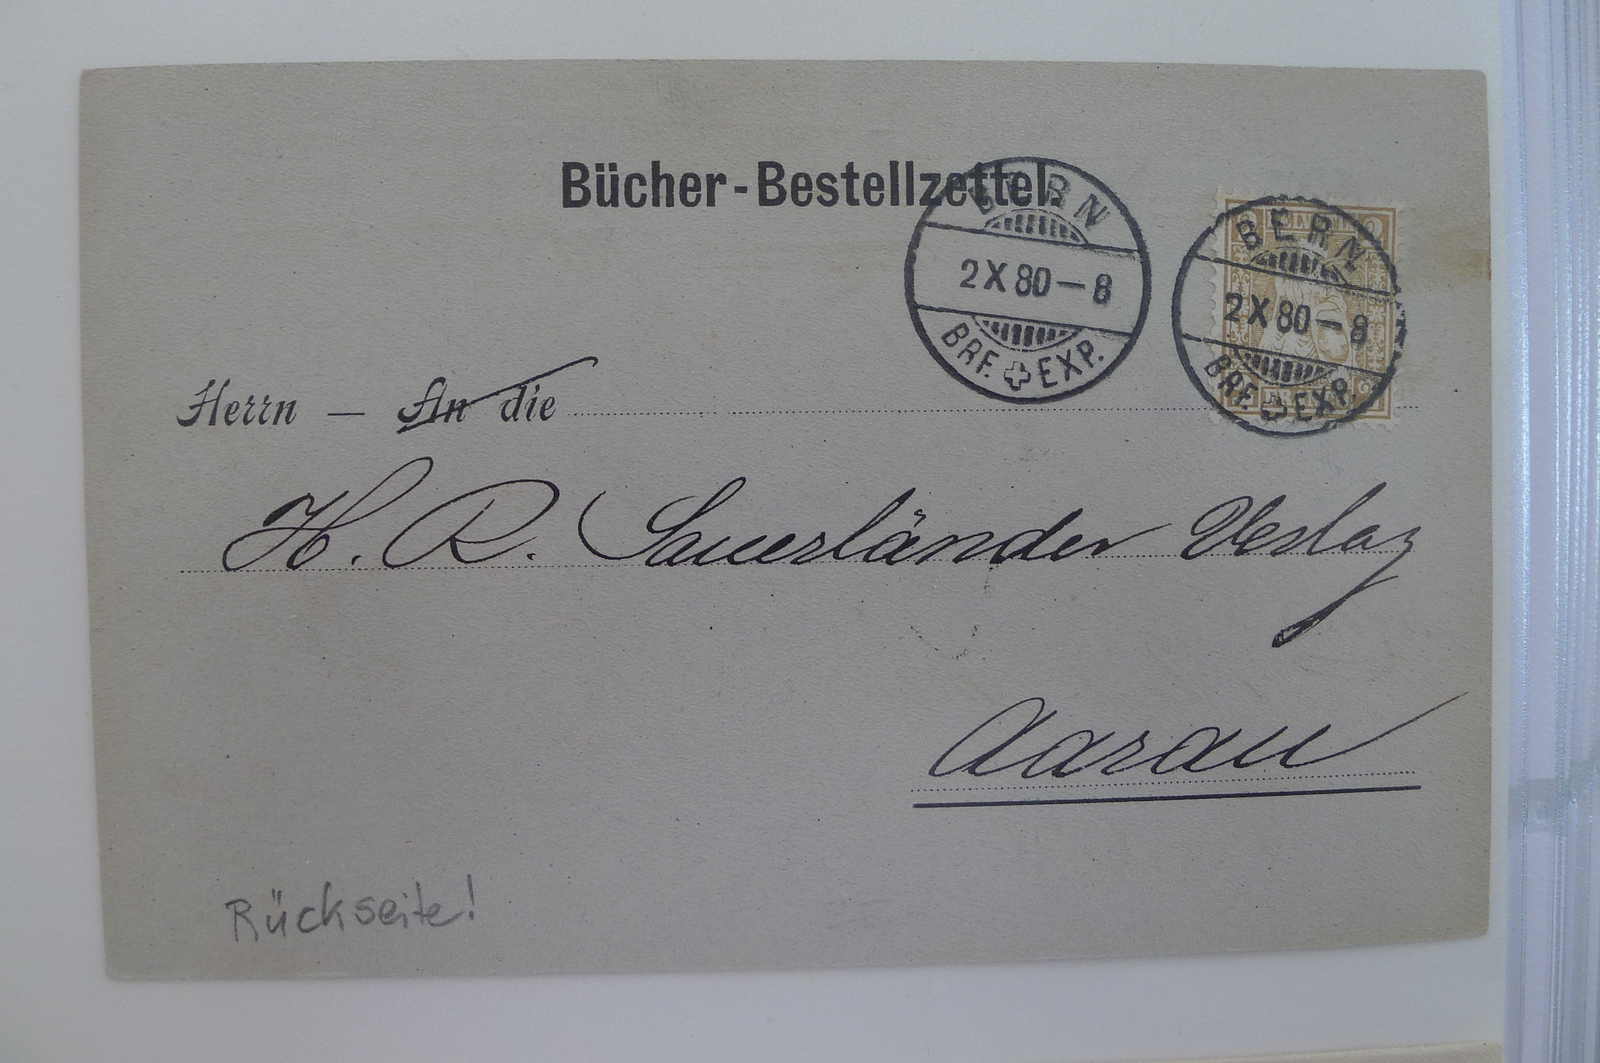 Bücher-Bestellzettel.
BERN
2 X 80-8
BRF. EXP.
BERN
2 X 80-8
BRF. EXP.
Herrn — An die
H. R. Sauerländer Verlag
Aarau
Rückseite!